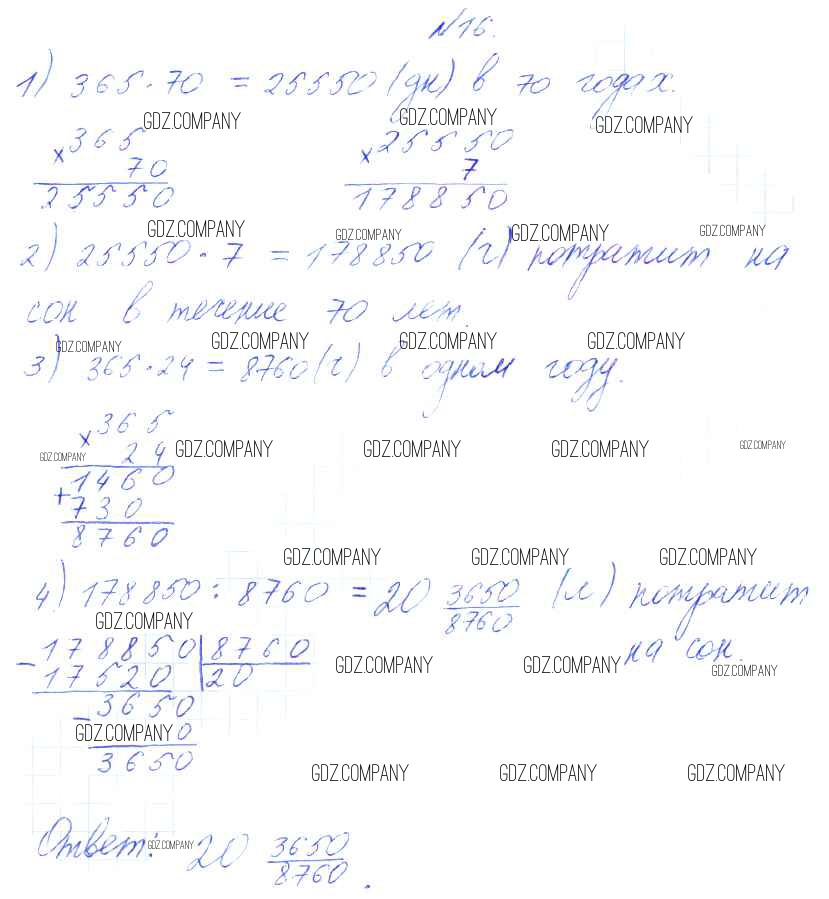 №16.
1) 365·70 = 25550 (дн) в 70 годах.
GDZ.COMPANY GDZ.COMPANY GDZ.COMPANY
×365 ×25550
70 7
25550 178850
GDZ.COMPANY GDZ.COMPANY GDZ.COMPANY GDZ.COMPANY
2) 25550·7 = 178850 (ч) потратит на
сон в течение 70 лет.
GDZ.COMPANY GDZ.COMPANY GDZ.COMPANY GDZ.COMPANY
3) 365·24 = 8760 (ч) в одном году.
×365
24
GDZ.COMPANY GDZ.COMPANY GDZ.COMPANY GDZ.COMPANY GDZ.COMPANY
1460
+730
8760
GDZ.COMPANY GDZ.COMPANY GDZ.COMPANY
4) 178850 : 8760 = 20 3650/8760 (л) потратит
GDZ.COMPANY
на сон.
-178850 | 8760
17520 | 20
GDZ.COMPANY GDZ.COMPANY GDZ.COMPANY
-3650
GDZ.COMPANY 0
3650
GDZ.COMPANY GDZ.COMPANY GDZ.COMPANY
Ответ: 20 3650/8760.
GDZ.COMPANY